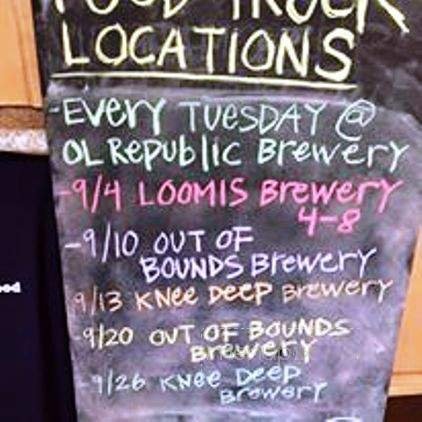 FOOD TRUCK
LOCATIONS
-EVERY TUESDAY @
OL REPUBLIC BREWERY
-9/4 LOOMIS BREWERY
4-8
-9/10 OUT OF
BOUNDS BREWERY
9/13 KNEE DEEP BREWERY
-9/20 OUT OF BOUNDS
BREWERY
9/26 KNEE DEEP
BREWERY